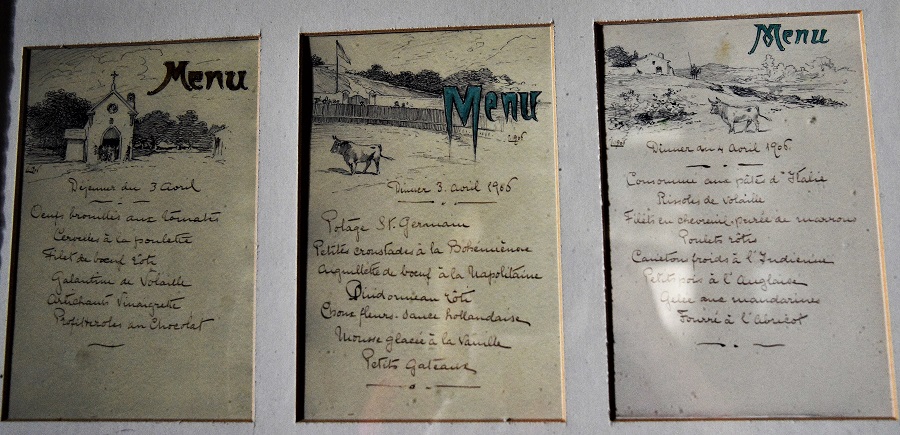 Menu
Déjeuner du 3 Avril
Oeufs brouillés aux tomates
Cervelles à la poulette
Filet de boeuf rôti
Galantine de Volaille
Artichauts Vinaigrette
Profiteroles au Chocolat
Menu
Dinner 3. avril 1906
Potage St. Germain
Petites croustades à la Bohémienne
Aiguillette de boeuf à la Napolitaine
Dindonneau rôti
Choux fleurs. Sauce hollandaise
Mousse glacée à la Vanille
Petits Gateaux
Menu
Dinner du 4 Avril 1906.
Consommé aux pâtes d'Italie
Rissoles de volaille
Filets en chevreuil. purée de marrons
Poulets rôtis
Caneton froids à l'Indienne
Petits pois à l'Anglaise
Gelée aux mandarines
Fourré à l'Abricot